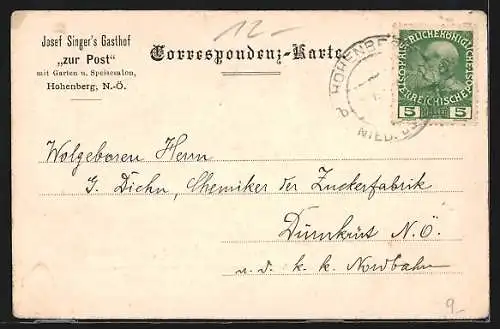 12-
Josef Singer's Gasthof
„zur Post"
mit Garten u. Speisesalon,
Hohenberg, N.-Ö.
Correspondenz-Karte
HOHENBE
NIED.
KAISERLICHEKÖNIGLICHE
ÖSTERREICHISCHEPOST
5 5
Wolgeboren Herrn
G. Diehn, Chemiker der Zuckerfabrik
Dürnkrut N.Ö.
a. d. k. k. Nordbahn
9-